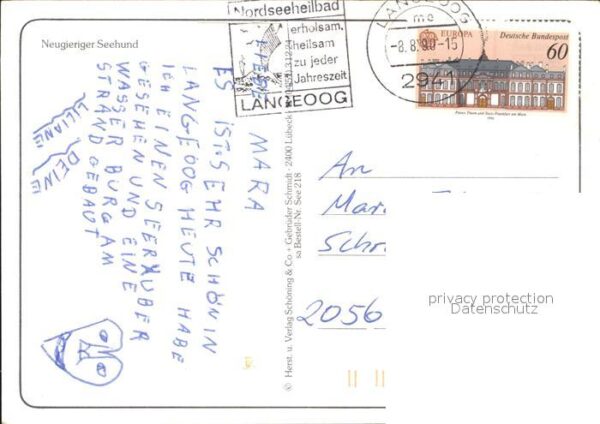 Neugieriger Seehund
Nordseeheilbad
erholsam,
heilsam
zu jeder
Jahreszeit
LANGEOOG
LANGEOOG
mc
-8.8.90-15
2941
EUROPA
Deutsche Bundespost
60
Palais Thurn und Taxis Frankfurt am Main
1990
MARA
ES IST SEHR SCHÖN IN
LANGEOOG HEUTE HABE
ICH EINEN SEERÄUBER
GESEHEN UND EINE
WASSER BURG AM
STRAND GEBAUT
DEINE
LILIANE
© Herst. u. Verlag Schöning & Co + Gebrüder Schmidt · 2400 Lübeck
sa Bestell-Nr. See 218
An
2056
privacy protection
Datenschutz